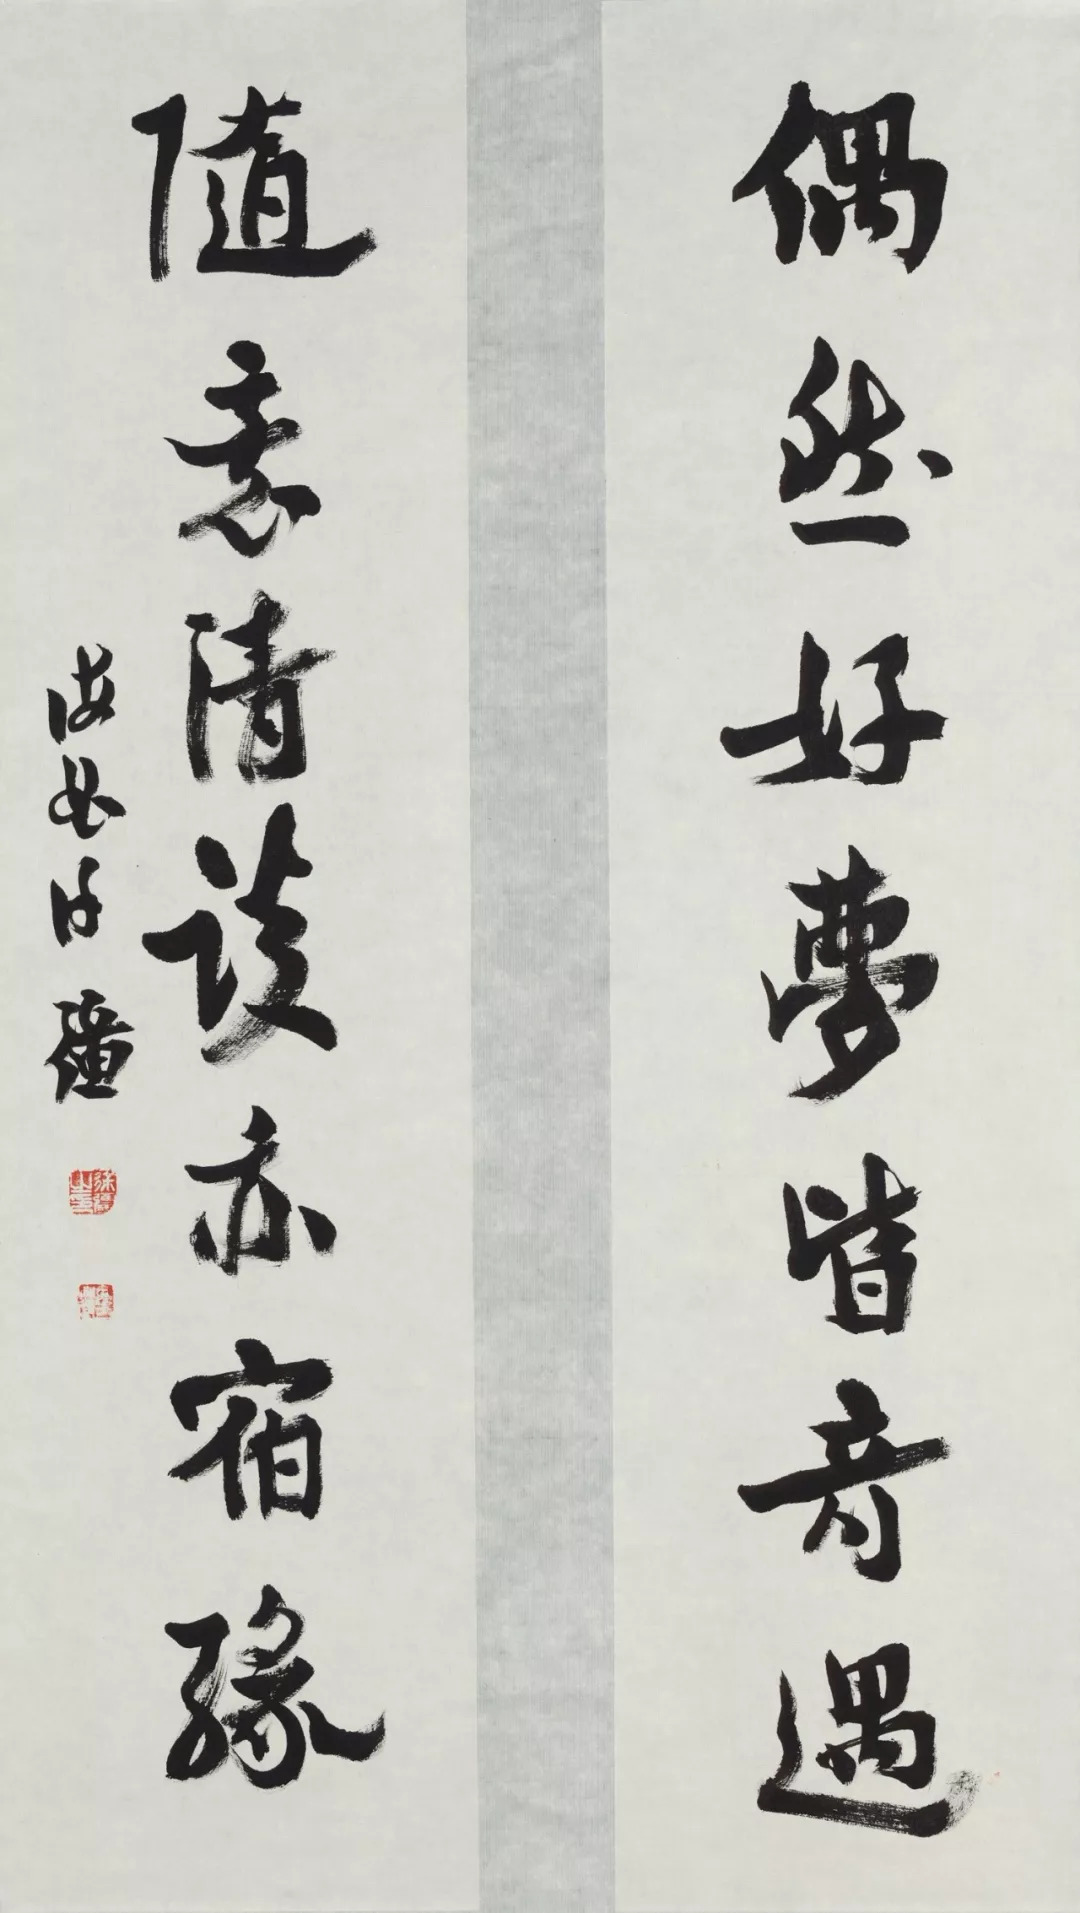 偶然好夢皆奇遇
随意清談亦宿緣
海安